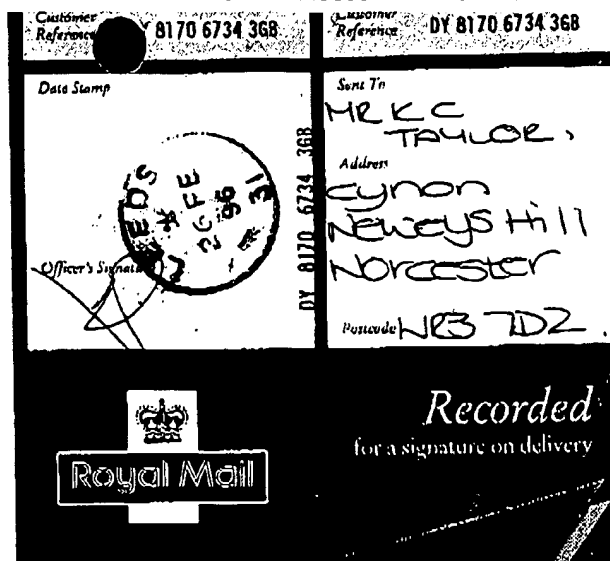 Customer
Reference
8170 6734 3GB
Date Stamp
LEEDS
26 FE
96
31
Officer's Signature
DY 8170 6734 3GB
Customer
Reference
DY 8170 6734 3GB
Sent To
MR K C
TAYLOR,
Address
Cynon
Neweys Hill
Worcester
Postcode WR3 7DZ.
Royal Mail
Recorded
for a signature on delivery